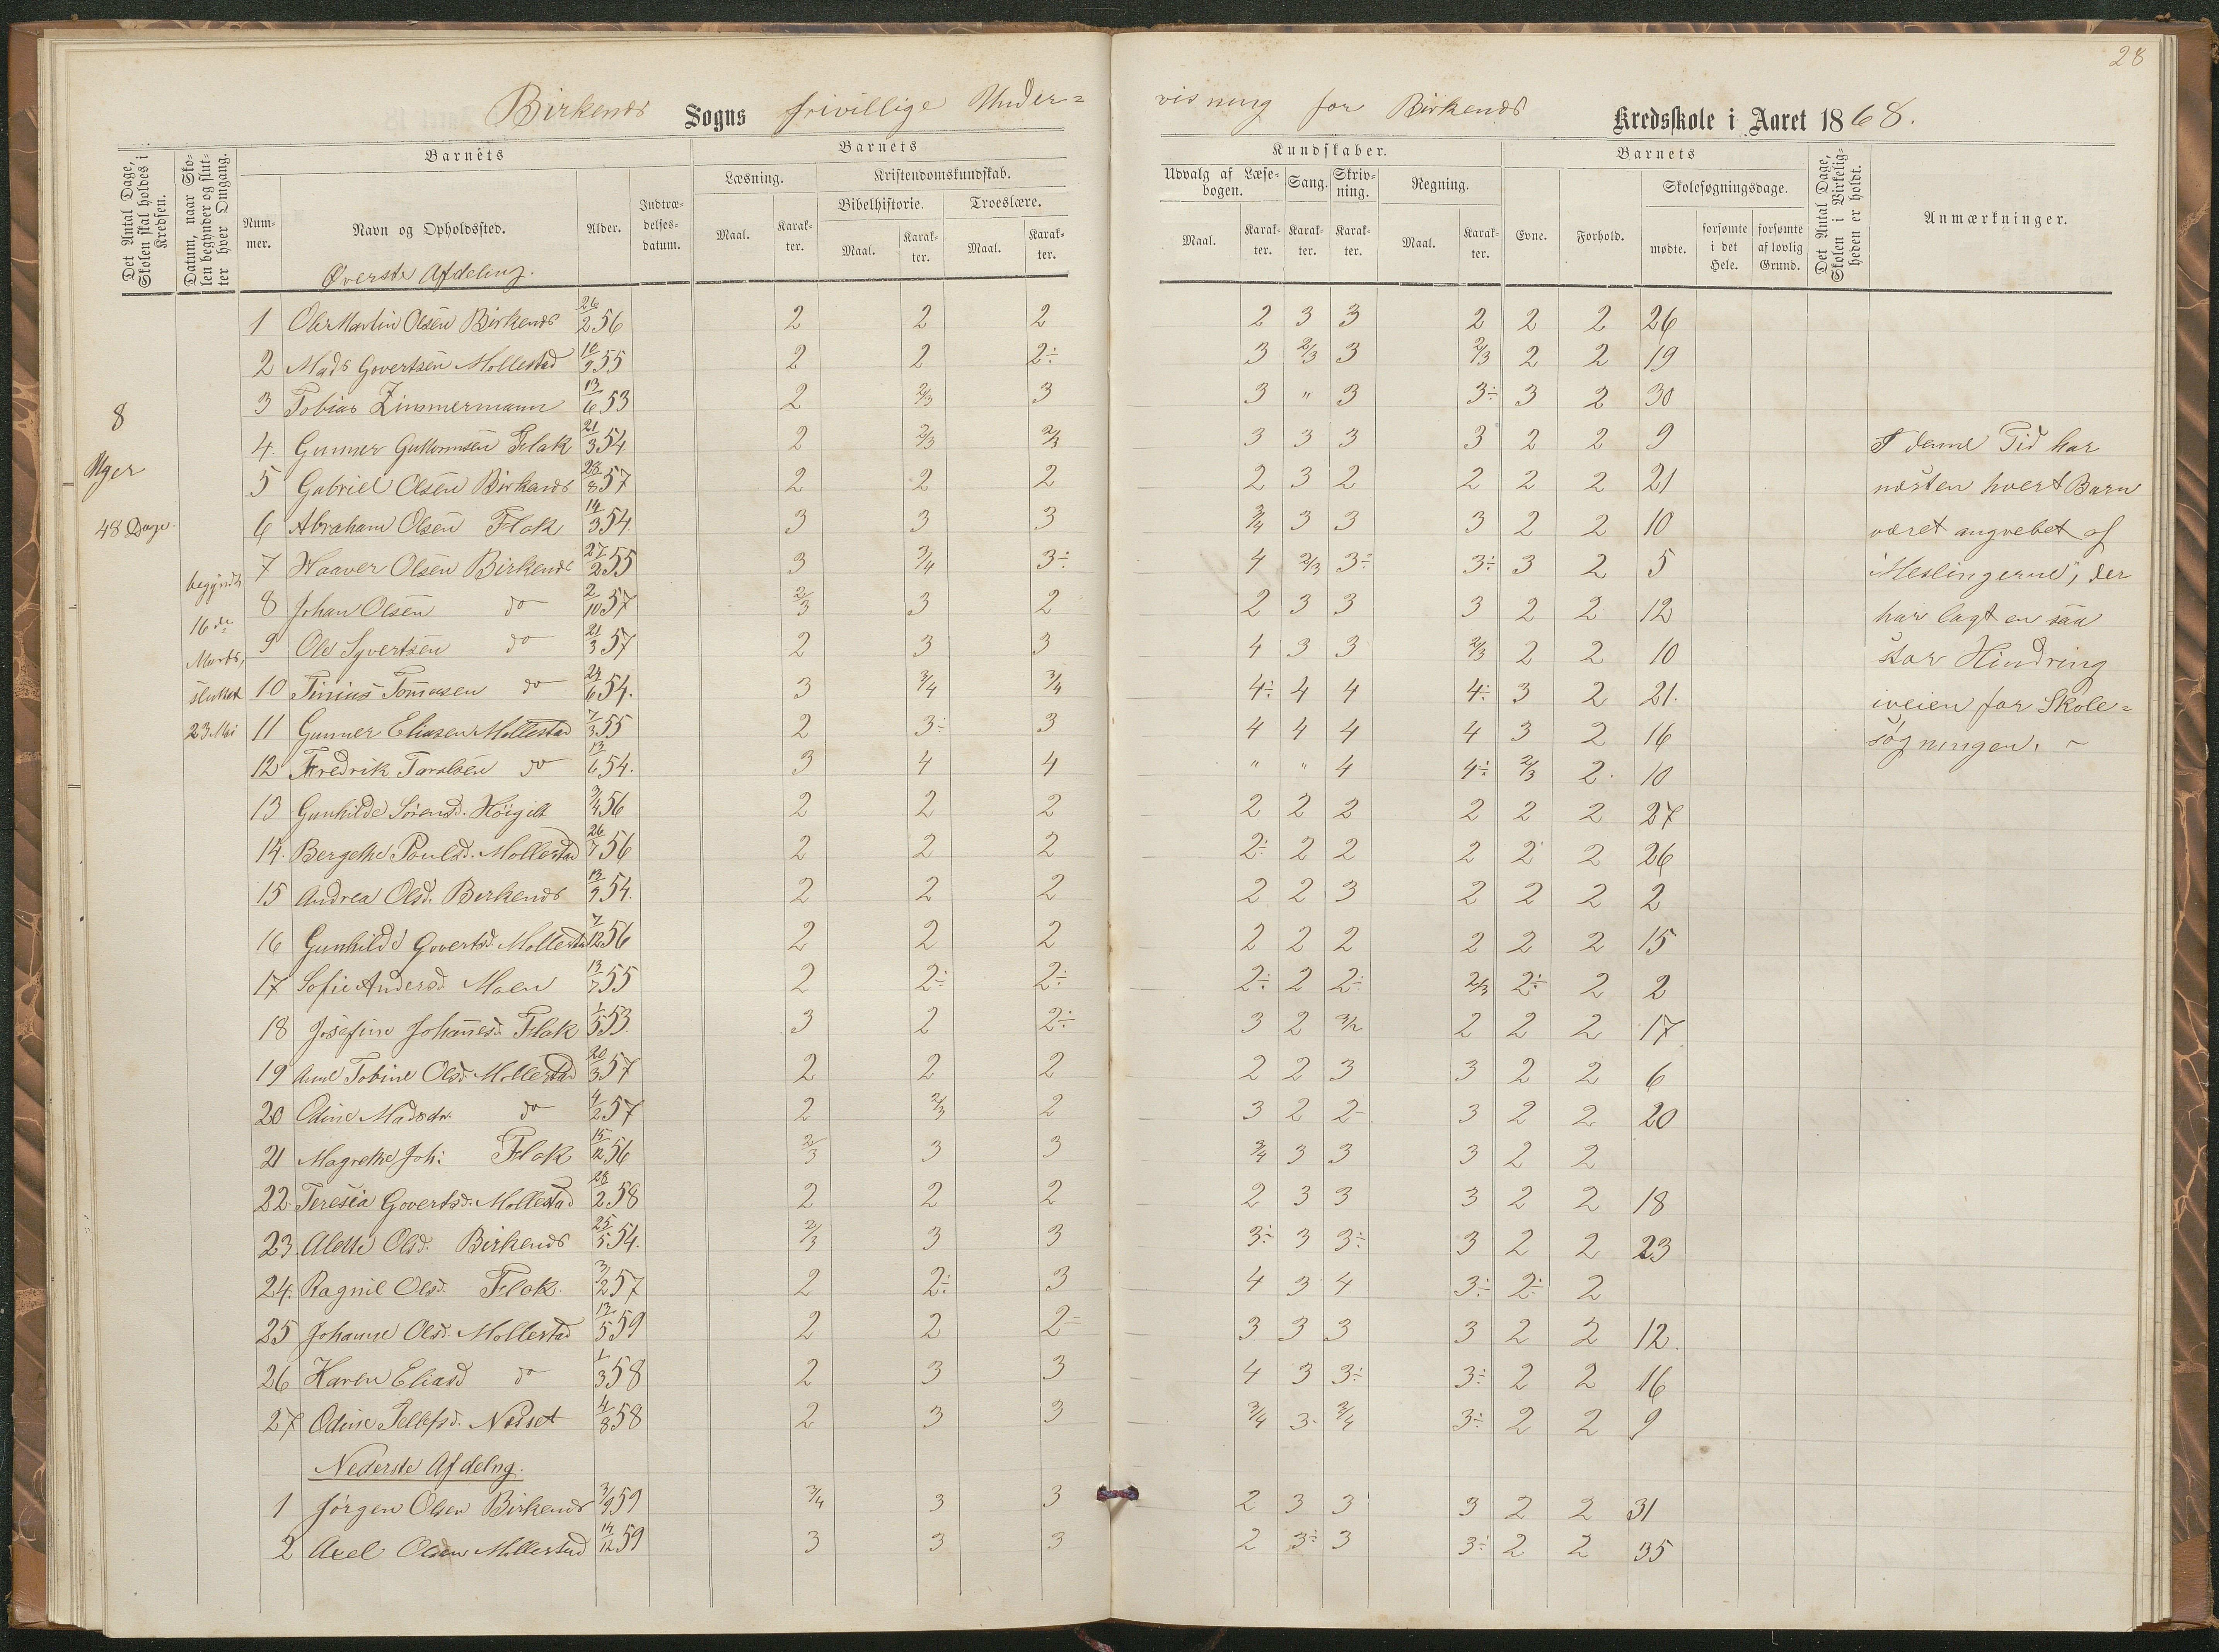 28
Birkenæs Sogns frivillige Under=
visning for Birkenæs Kredsskole i Aaret 1868.
Det Antal Dage, Skolen skal holdes i Kredsen.
Datum, naar Skolen begynder og slutter hver Omgang.
Barnets
Nummer.
Navn og Opholdssted.
Alder.
Indtrædelsesdatum.
Barnets
Læsning.
Kristendomskundskab.
Bibelhistorie.
Troeslære.
Maal.
Karakter.
Maal.
Karakter.
Maal.
Karakter.
Kundskaber.
Udvalg af Læsebogen.
Sang.
Skrivning.
Regning.
Maal.
Karakter.
Karakter.
Karakter.
Maal.
Karakter.
Barnets
Evne.
Forhold.
Skolesøgningsdage.
mødte.
forsømte i det Hele.
forsømte af lovlig Grund.
Det Antal Dage, Skolen i Virkeligheden er holdt.
Anmærkninger.
Øverste Afdeling.
8
Uger
48 Dage
begyndt
16de
Marts,
sluttet
23 Mai
1 Ole Martin Olsen Birkenæs 26/2 56 2 2 2 2 3 3 2 2 2 26
2 Mads Govertsen Mollestad 10/9 55 2 2 2÷ 3 2/3 3 2/3 2 2 19
3 Tobias Zimmermann 13/6 53 2 2/3 3 3 " 3 3÷ 3 2 30
4. Gunner Guttormsen Flak 21/3 54 2 2/3 2/3 3 3 3 3 2 2 9
5 Gabriel Olsen Birkenæs 28/8 57 2 2 2 2 3 2 2 2 2 21
6 Abraham Olsen Flak 14/3 54 3 3 3 3/4 3 3 3 2 2 10
7 Haaver Olsen Birkenæs 27/2 55 3 3/4 3÷ 4 2/3 3÷ 3÷ 3 2 5
8 Johan Olsen do 2/10 57 2/3 3 2 2 3 3 3 2 2 12
9 Ole Syvertsen do 21/3 57 2 3 3 4 3 3 2/3 2 2 10
10 Tinius Tomasen do 24/6 54. 3 3/4 3/4 4÷ 4 4 4÷ 3 2 21.
11 Gunner Eliasen Mollestad 7/3 55 2 3÷ 3 4 4 4 4 3 2 16
12 Fredrik Taralsen do 13/6 54. 3 4 4 " " 4 4÷ 2/3 2. 10
13 Gunhilde Sørensd. Høigilt 3/4 56 2 2 2 2 2 2 2 2 2 27
14. Bergethe Poulsd. Mollestad 26/7 56 2 2 2 2÷ 2 2 2 2 2 26
15 Andrea Olsd. Birkenæs 13/9 54. 2 2 2 2 2 3 2 2 2 2
16 Gunhilde Govertsd. Mollestad 7/12 56 2 2 2 2 2 2 2 2 2 15
17 Sofie Andersd Moen 13/7 55 2 2÷ 2÷ 2÷ 2 2÷ 2/3 2÷ 2 2
18 Josefine Johanesd. Flak 1/5 53. 3 2 2÷ 3 2 3/2 2 2 2 17
19 Anne Tobine Olsd. Mollestad 20/3 57 2 2 2 2 2 3 3 2 2 6
20 Odine Madsdr. do 4/2 57 2 2/3 2 3 2 2- 3 2 2 20
21 Magrethe Joh: Flak 15/12 56 2/3 3 3 3/4 3 3 3 2 2
22. Teresia Govertsd. Mollestad 28/2 58 2 2 2 2 3 3 3 2 2 18
23 Alette Olsd. Birkenæs 25/5 54. 2/3 3 3 3÷ 3 3÷ 3 2 2 23
24. Ragnil Olsd. Flak. 3/2 57 2 2÷ 3 4 3 4 3÷ 2÷ 2
25 Johanne Olsd. Mollestad 13/5 59 2 2 2= 3 3 3 3 2 2 12.
26 Karen Eliasd do 1/3 58 2 3 3 4 3 3÷ 3÷ 2 2 16
27 Odine Tellefsd. Næset 4/8 58 2 3 3 3/4 3- 3/4 3÷ 2 2 9
Nederste Afdelng.
1 Jørgen Olsen Birkenæs 3/9 59 3/4 3 3 2 3 3 3 2 2 31
2 Axel Olsen Mollestad 14/12 59 3 3 3 2 3÷ 3 3÷ 2 2 35
I denne Tid har
næsten hvert Barn
været angrebet af
"Meslingerne", der
har lagt en saa
stor Hindring
iveien for Skole=
søgningen. -